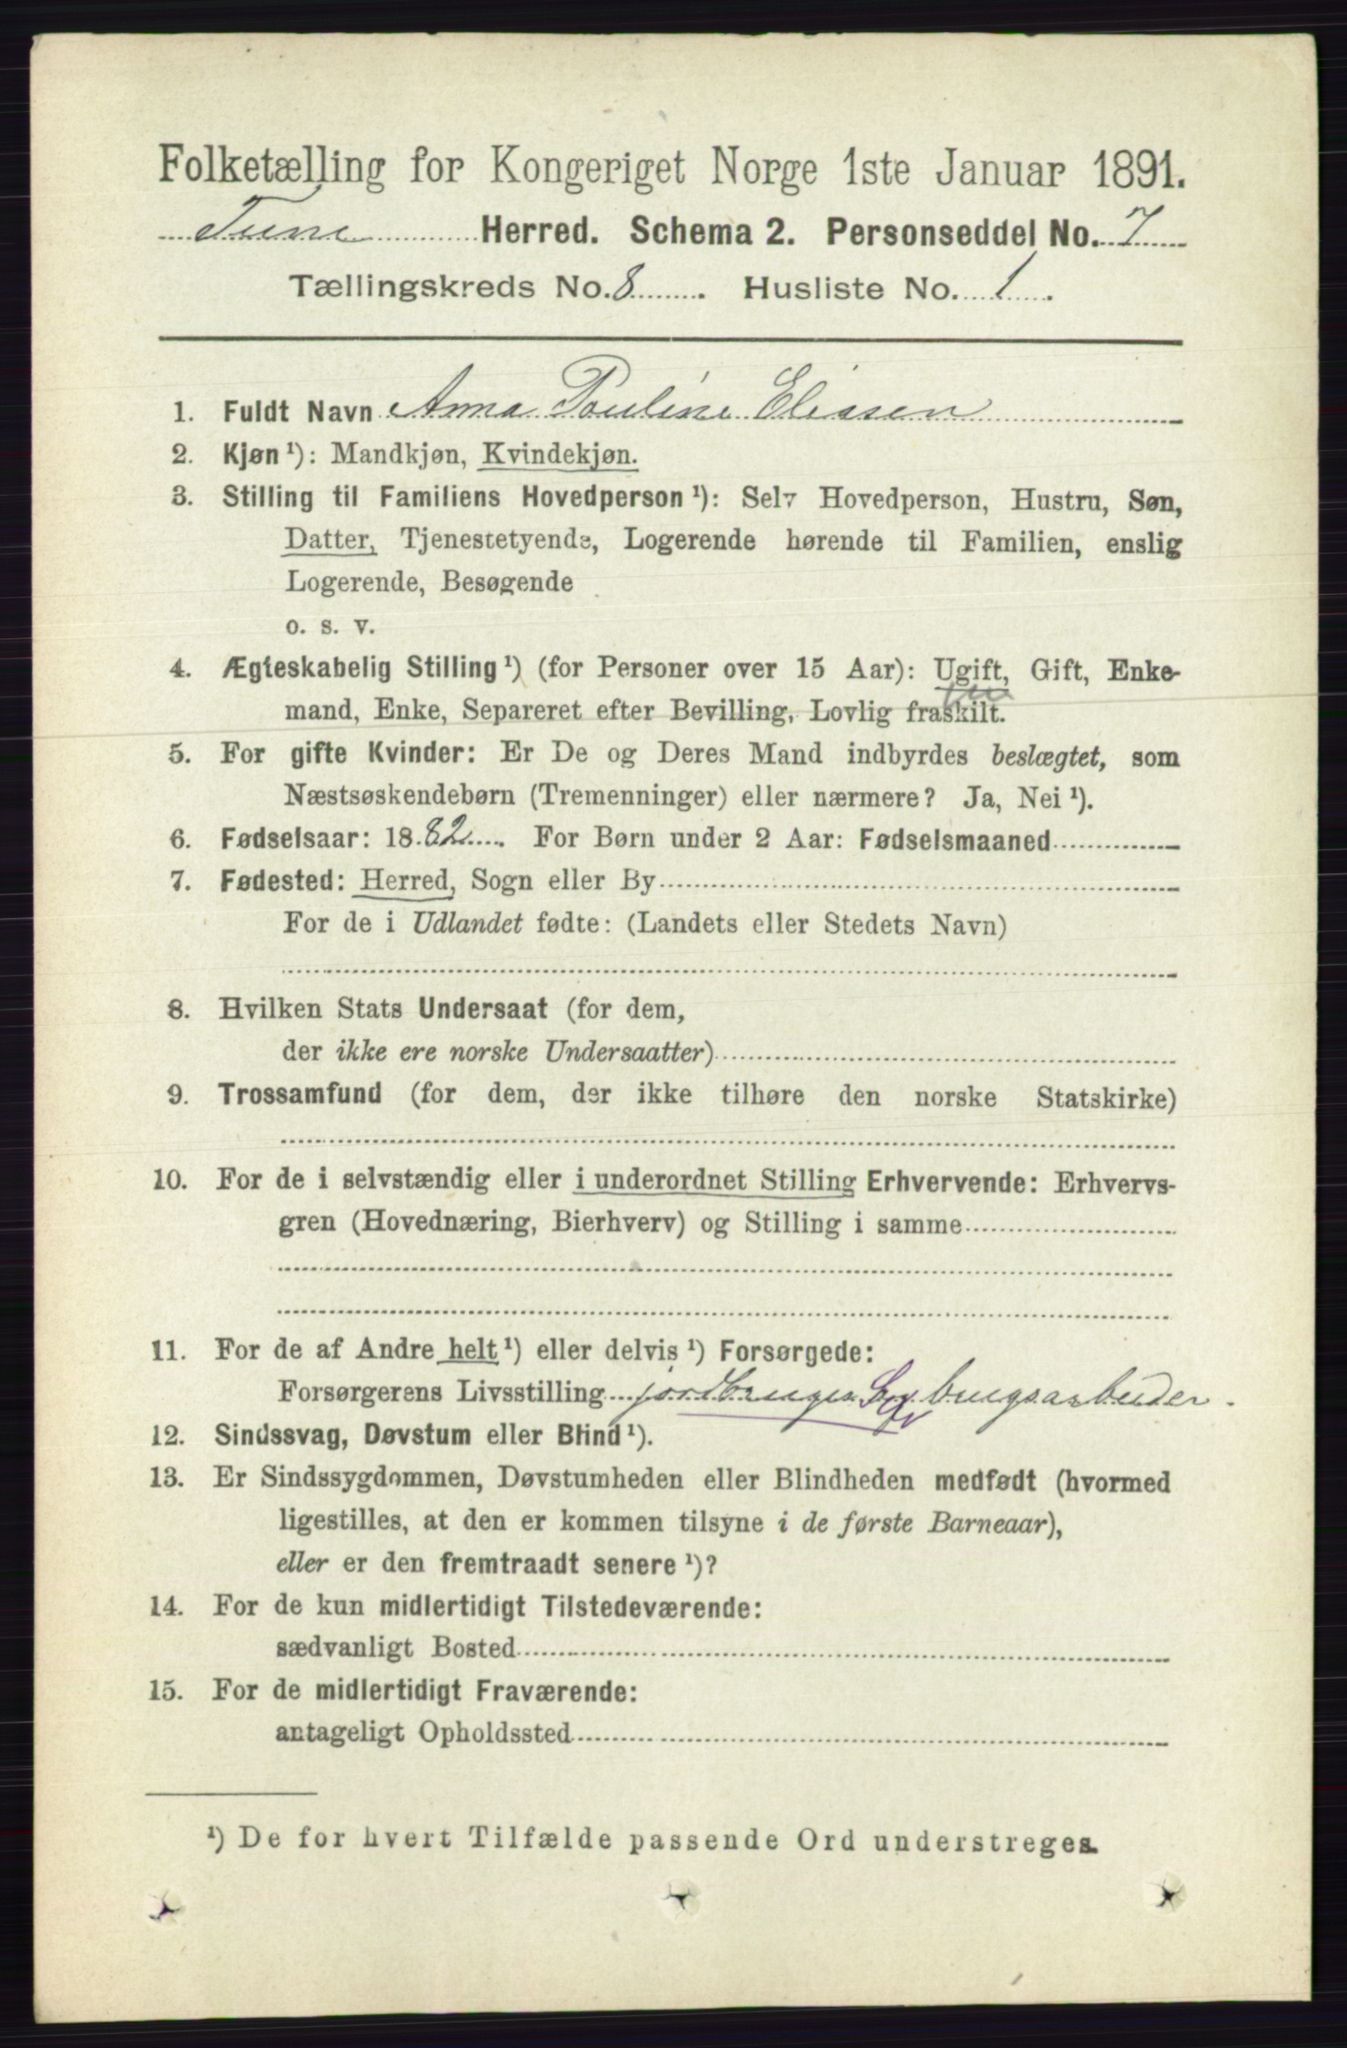 Folketælling for Kongeriget Norge 1ste Januar 1891.
Tune Herred. Schema 2. Personseddel No. 7
Tællingskreds No. 8 . Husliste No. 1 .
1. Fuldt Navn Anna Pouline Eliasen
2. Kjøn ¹): Mandkjøn, Kvindekjøn.
3. Stilling til Familiens Hovedperson ¹): Selv Hovedperson, Hustru, Søn,
Datter, Tjenestetyende, Logerende hørende til Familien, enslig
Logerende, Besøgende
o. s. v.
4. Ægteskabelig Stilling ¹) (for Personer over 15 Aar): Ugift, Gift, Enke-
mand, Enke, Separeret efter Bevilling, Lovlig fraskilt.
5. For gifte Kvinder: Er De og Deres Mand indbyrdes beslægtet, som
Næstsøskendebørn (Tremenninger) eller nærmere? Ja, Nei ¹).
6. Fødselsaar: 1882 . For Børn under 2 Aar: Fødselsmaaned
7. Fødested: Herred, Sogn eller By
For de i Udlandet fødte: (Landets eller Stedets Navn)
8. Hvilken Stats Undersaat (for dem,
der ikke ere norske Undersaatter)
9. Trossamfund (for dem, der ikke tilhøre den norske Statskirke)
10. For de i selvstændig eller i underordnet Stilling Erhvervende: Erhvervs-
gren (Hovednæring, Bierhverv) og Stilling i samme
11. For de af Andre helt ¹) eller delvis ¹) Forsørgede:
Forsørgerens Livsstilling jordbruger brugsarbeider.
12. Sindssvag, Døvstum eller Blind ¹).
13. Er Sindssygdommen, Døvstumheden eller Blindheden medfødt (hvormed
ligestilles, at den er kommen tilsyne i de første Barneaar),
eller er den fremtraadt senere ¹)?
14. For de kun midlertidigt Tilstedeværende:
sædvanligt Bosted
15. For de midlertidigt Fraværende:
antageligt Opholdssted
¹) De for hvert Tilfælde passende Ord understreges.